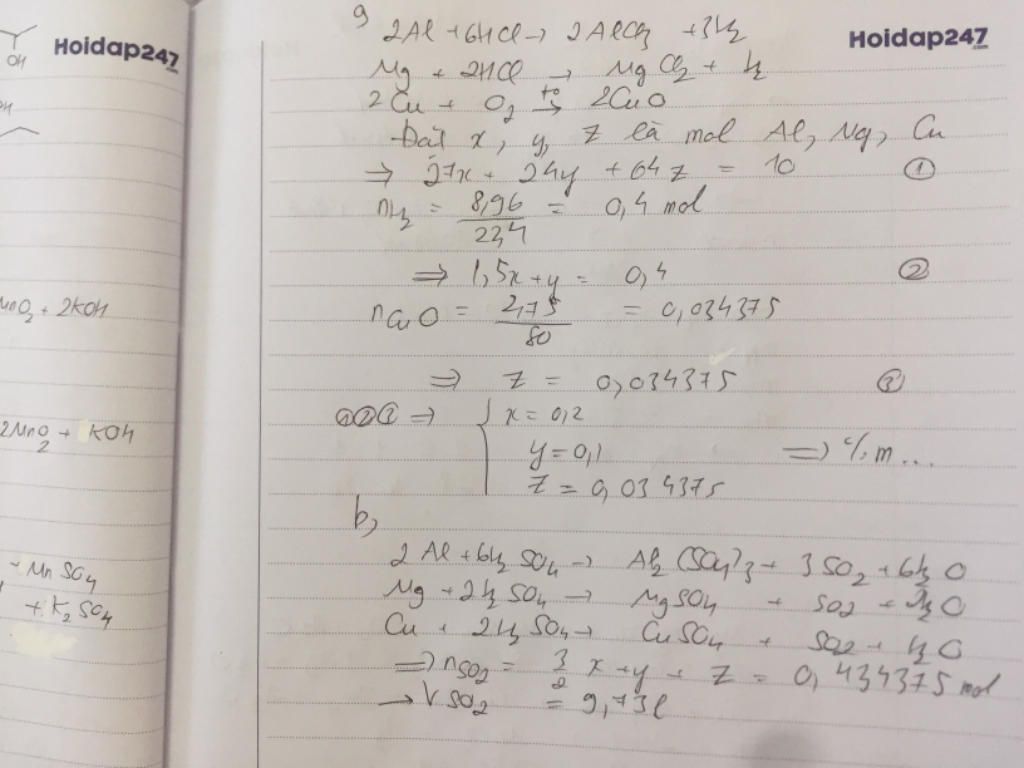 OH
Hoidap247
Hoidap247
OH
MnO2 + 2KOH
2MnO2 + KOH
+ MnSO4
+ K2SO4
a,
2Al + 6HCl → 2AlCl3 + 3H2
Mg + 2HCl → MgCl2 + H2
2Cu + O2 →(t°) 2CuO
Đặt x, y, z là mol Al, Mg, Cu
⇒ 27x + 24y + 64z = 10 ①
nH2 = 8,96/22,4 = 0,4 mol
⇒ 1,5x + y = 0,4 ②
nCuO = 2,75/80 = 0,034375
⇒ z = 0,034375 ③
①②③ ⇒ { x = 0,2
y = 0,1 ⇒ %m...
z = 0,034375
b,
2Al + 6H2SO4 → Al2(SO4)3 + 3SO2 + 6H2O
Mg + 2H2SO4 → MgSO4 + SO2 + 2H2O
Cu + 2H2SO4 → CuSO4 + SO2 + H2O
⇒ nSO2 = 3/2 x + y + z = 0,434375 mol
→ VSO2 = 9,73l